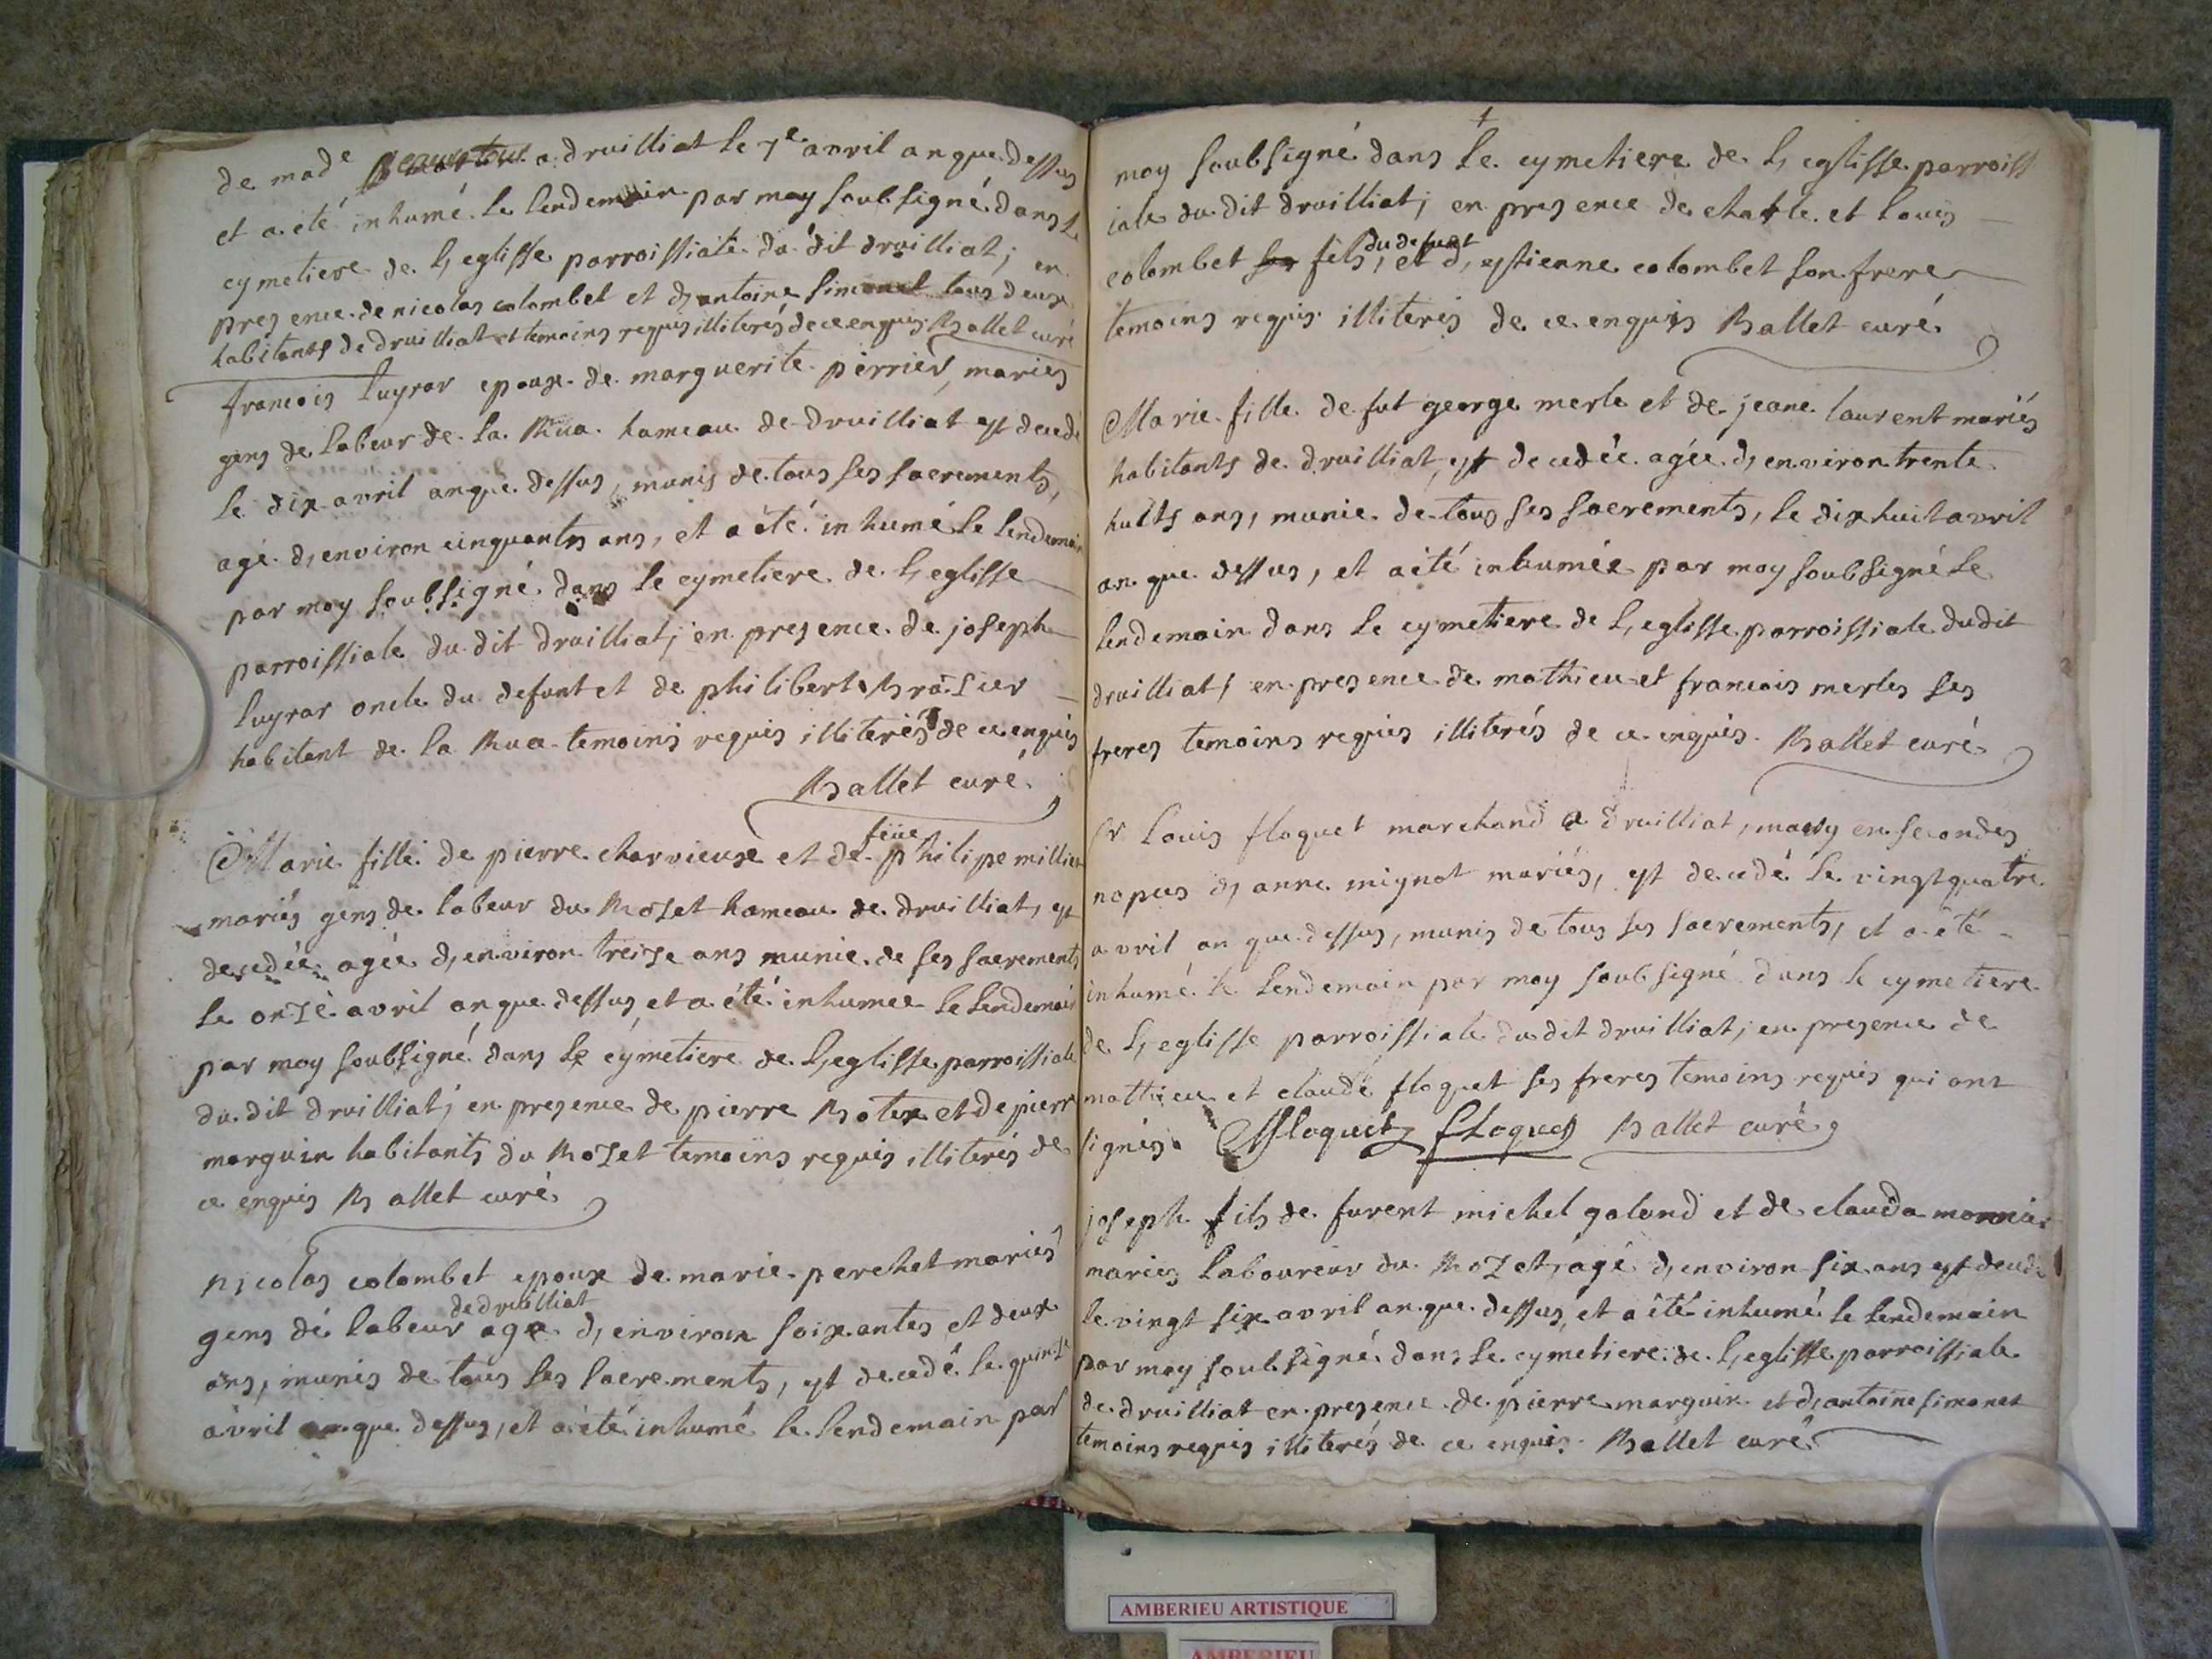 de mad.e a druilliat le 7.e avril an que dessus
et a eté inhumé le lendemain par moy soubsigné dans le
cymetiere de l, eglisse parroissiale du dit druilliat; en
presence de nicolas colombet et d, antoine simonet tous deux
habitants de druilliat et temoins requis illiterés de ce enquis Ballet curé
francois luyrar epoux de marguerite perrier, mariés
gens de labeur de la Rua hameau de druilliat est decedé
le dix avril an que dessus, munis de tous ses sacrements,
agé d, environ cinquantes ans, et a été inhumé le lendemain
par moy soubsigné dans le cymetiere de l, eglisse
parroissiale du dit druilliat; en presence de joseph
luyrar oncle du defunt et de philibert Brasier
habitant de la Rua temoins requis illiterés de ce enquis
Ballet curé
Marie fille de pierre charvieux et de feüe philipe millier
mariés gens de labeur du Rozet hameau de druilliat, est
decedée agée d, environ treize ans munie de ses sacrements
le onze avril an que dessus, et a été inhumée le lendemain
par moy soubsigné dans le cymetiere de l, eglisse parroissiale
du dit druilliat; en presence de pierre et de pierre
marguin habitants du Rozet temoins requis illiterés de
ce enquis Ballet curé
nicolas colombet epoux de marie perchet mariés
gens de labeur de druilliat agé d, environ soixantes et deux
ans, munis de tous ses sacrements, est decedé le quinze
avril an que dessus, et a été inhumé le lendemain par
moy soubsigné dans le cymetiere de l, eglisse parroiss
iale du dit druilliat; en presence de charle et louis
colombet fils du defunt, et d, estienne colombet son frere
temoins requis illiterés de ce enquis Ballet curé
Marie fille de fut george merle et de jeane laurent mariés
habitants de druilliat, est decedée agée d, environ trente
huits ans, munie de tous ses sacrements, le dix huit avril
an que dessus, et a été inhumée par moy soubsigné le
lendemain dans le cymetiere de l, eglisse parroissiale du dit
druilliat, en presence de mathieu et francois merles ses
freres temoins requis illiterés de ce enquis Ballet curé
sr Louis floquet marchand a druilliat, mary en secondes
nopces d, anne mignot mariés, est decedé le vingt quatre
avril an que dessus, munis de tous ses sacrements, et a été
inhumé le lendemain par moy soubsigné dans le cymetiere
de l, eglisse parroissiale du dit druilliat, en presence de
mathieu et claude floquet ses freres temoins requis qui ont
signés. Mfloquet floquet Ballet curé
joseph fils de furent michel galand et de clauda
mariés laboureur du Rozet, agé d, environ six ans est decedé
le vingt six avril an que dessus, et a été inhumé le lendemain
par moy soubsigné dans le cymetiere de l, eglisse parroissiale
de druilliat en presence de pierre marguin et d, antoine simonet
temoins requis illiterés de ce enquis Ballet curé
AMBERIEU ARTISTIQUE
AMBERIEU